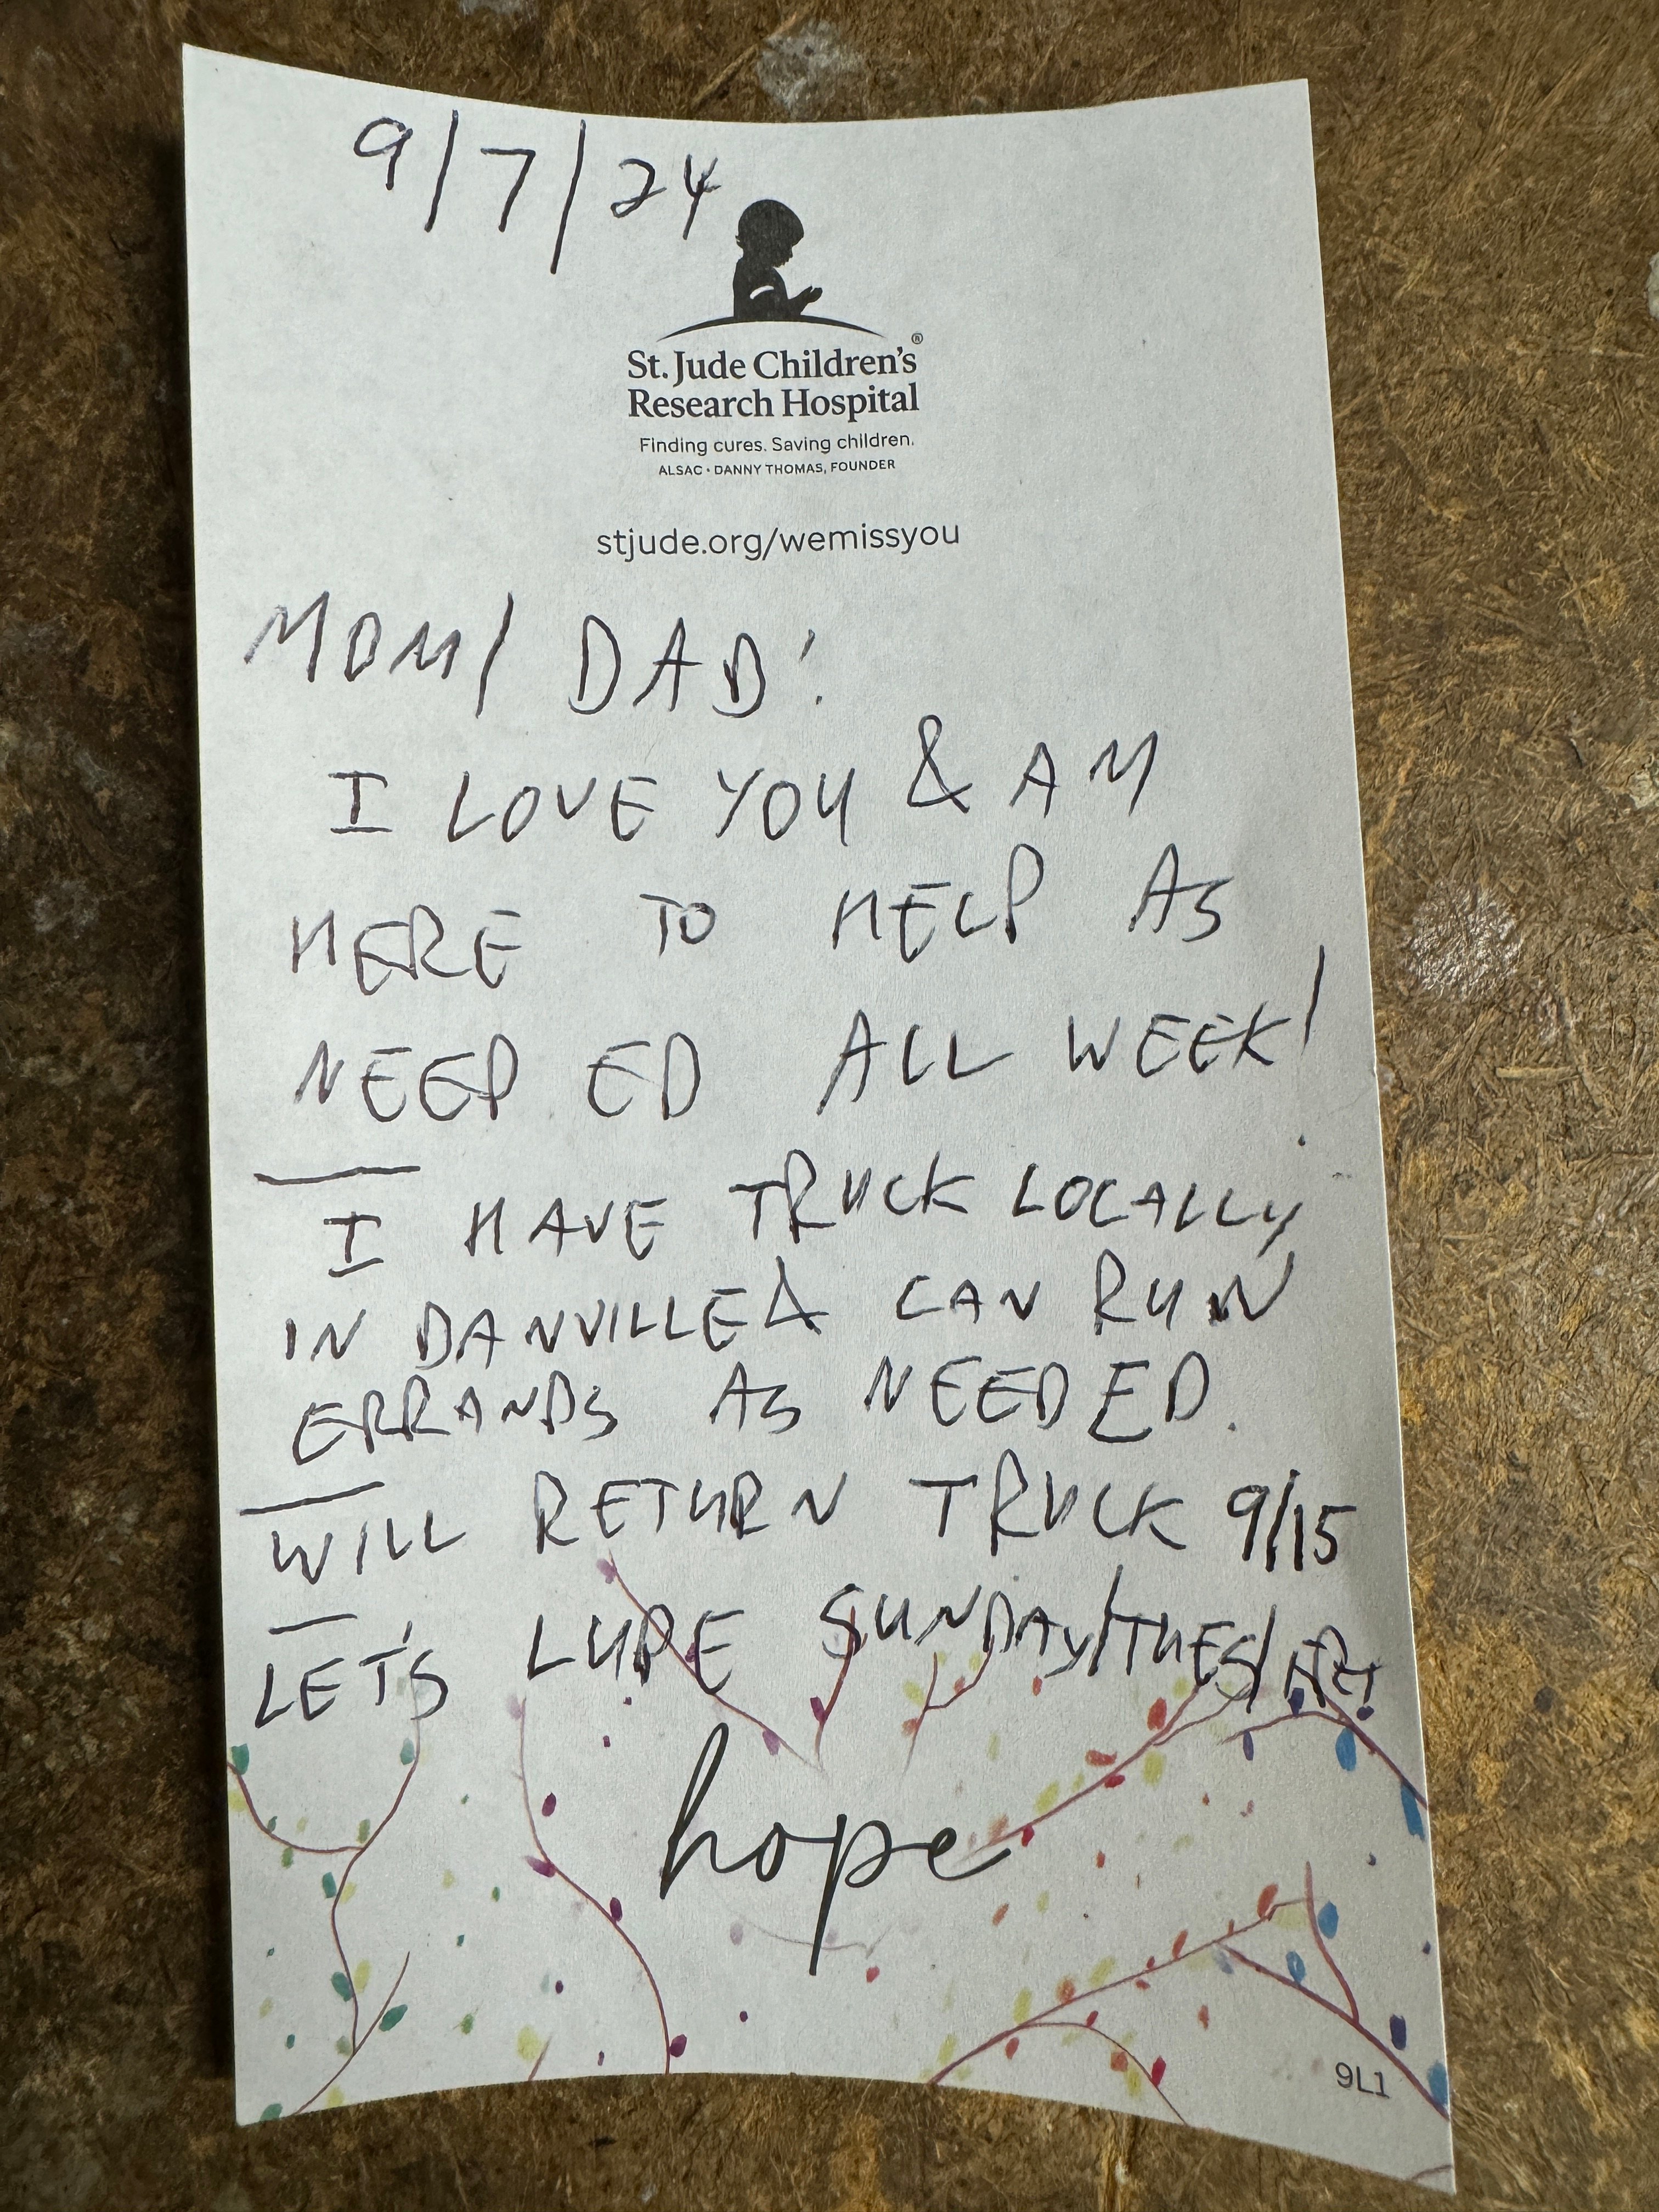 9/7/24
St. Jude Children's®
Research Hospital
Finding cures. Saving children.
ALSAC • DANNY THOMAS, FOUNDER
stjude.org/wemissyou
MOM/ DAD:
I LOVE YOU & AM
HERE TO HELP AS
NEED ED ALL WEEK!
I HAVE TRUCK LOCALLY
IN DANVILLE & CAN RUN
ERRANDS AS NEEDED.
WILL RETURN TRUCK 9/15
LET'S LUPE SUNDAY/TUES/FRI
hope
9L1